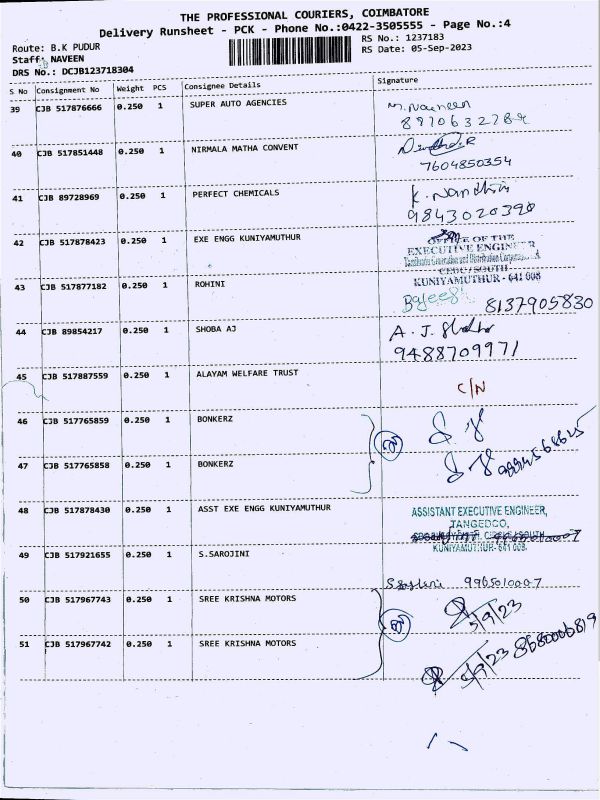 THE PROFESSIONAL COURIERS, COIMBATORE
Delivery Runsheet - PCK - Phone No.:0422-3505555 - Page No.:4
Route: B.K PUDUR
RS No.: 1237183
Staff: NAVEEN
RS Date: 05-Sep-2023
DRS No.: DCJB123718304
S No Consignment No Weight PCS Consignee Details Signature
39 CJB 517876666 0.250 1 SUPER AUTO AGENCIES M. Naveen
40 CJB 517851448 0.250 1 NIRMALA MATHA CONVENT
7604850354
41 CJB 89728969 0.250 1 PERFECT CHEMICALS K. Nandhini
9843020390
42 CJB 517878423 0.250 1 EXE ENGG KUNIYAMUTHUR OFFICE OF THE
EXECUTIVE ENGINEER
CEDC / SOUTH
KUNIYAMUTHUR - 641 008
43 CJB 517877182 0.250 1 ROHINI 8137905830
44 CJB 89854217 0.250 1 SHOBA AJ A. J.
9488709971
45 CJB 517887559 0.250 1 ALAYAM WELFARE TRUST C/N
46 CJB 517765859 0.250 1 BONKERZ
47 CJB 517765858 0.250 1 BONKERZ
48 CJB 517878430 0.250 1 ASST EXE ENGG KUNIYAMUTHUR ASSISTANT EXECUTIVE ENGINEER,
TANGEDCO,
KUNIYAMUTHUR - 641 008.
49 CJB 517921655 0.250 1 S.SAROJINI
9965010007
50 CJB 517967743 0.250 1 SREE KRISHNA MOTORS 5/9/23
51 CJB 517967742 0.250 1 SREE KRISHNA MOTORS 5/9/23 8680006819